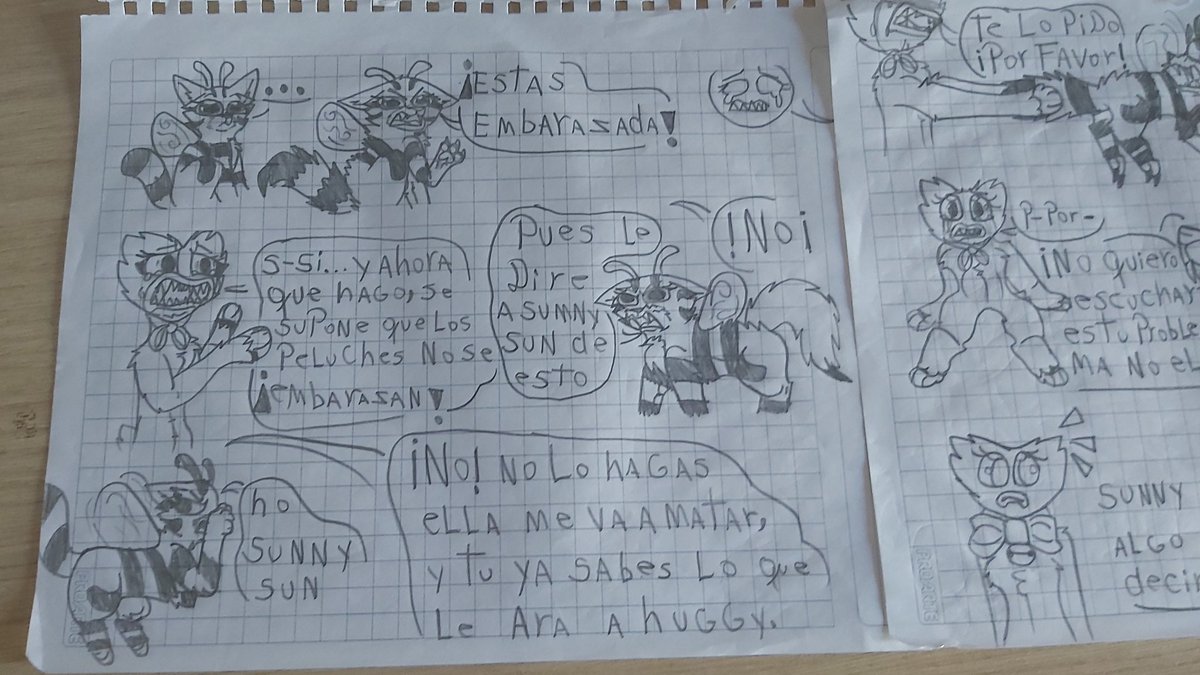 ...
¡ESTAS
EMbARASADA!
S-Si... y Ahora
que hAGO, se
SuPONe queLOS
PeLuches NO se
¡EMbARASAN!
Pues Lo
Dire
A SUNNY
SUN de
esto
!NO¡
hO
SUNNY
SUN
¡NO! NO LO hAGAS
eLLA Me VA A MATAR,
y tu YA SAbes LO que
Le ARA A huGGy.
Te LO PiDO
¡POr FAVOr!
P-POr-
¡NO quierO
escuchar
es tu
MA NO
SUNNY
ALGO